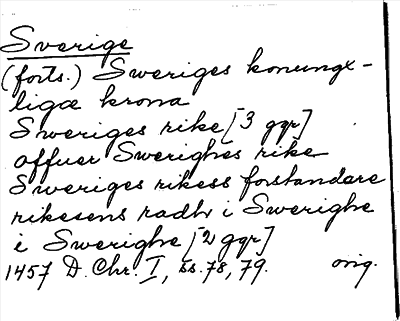 Sverige
(forts.) Sweriges konungx-
ligæ krona
Sweriges rike [3 ggr]
offuer Swerighes rike
Sweriges rikess forstandare
rikesens radh i Swerighe
i Swerighe [2 ggr]
1457 D. Chr. I, ss. 78, 79. orig.